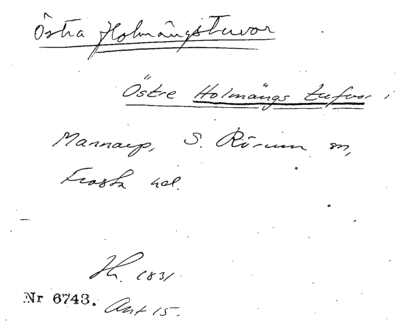 Östra Holmängstuvor
Östre Holmängs tufvor i
Mannarp, S. Rörum sn,
Frosta hd.
Hh. 1831
Nr 6743. Akt 15.